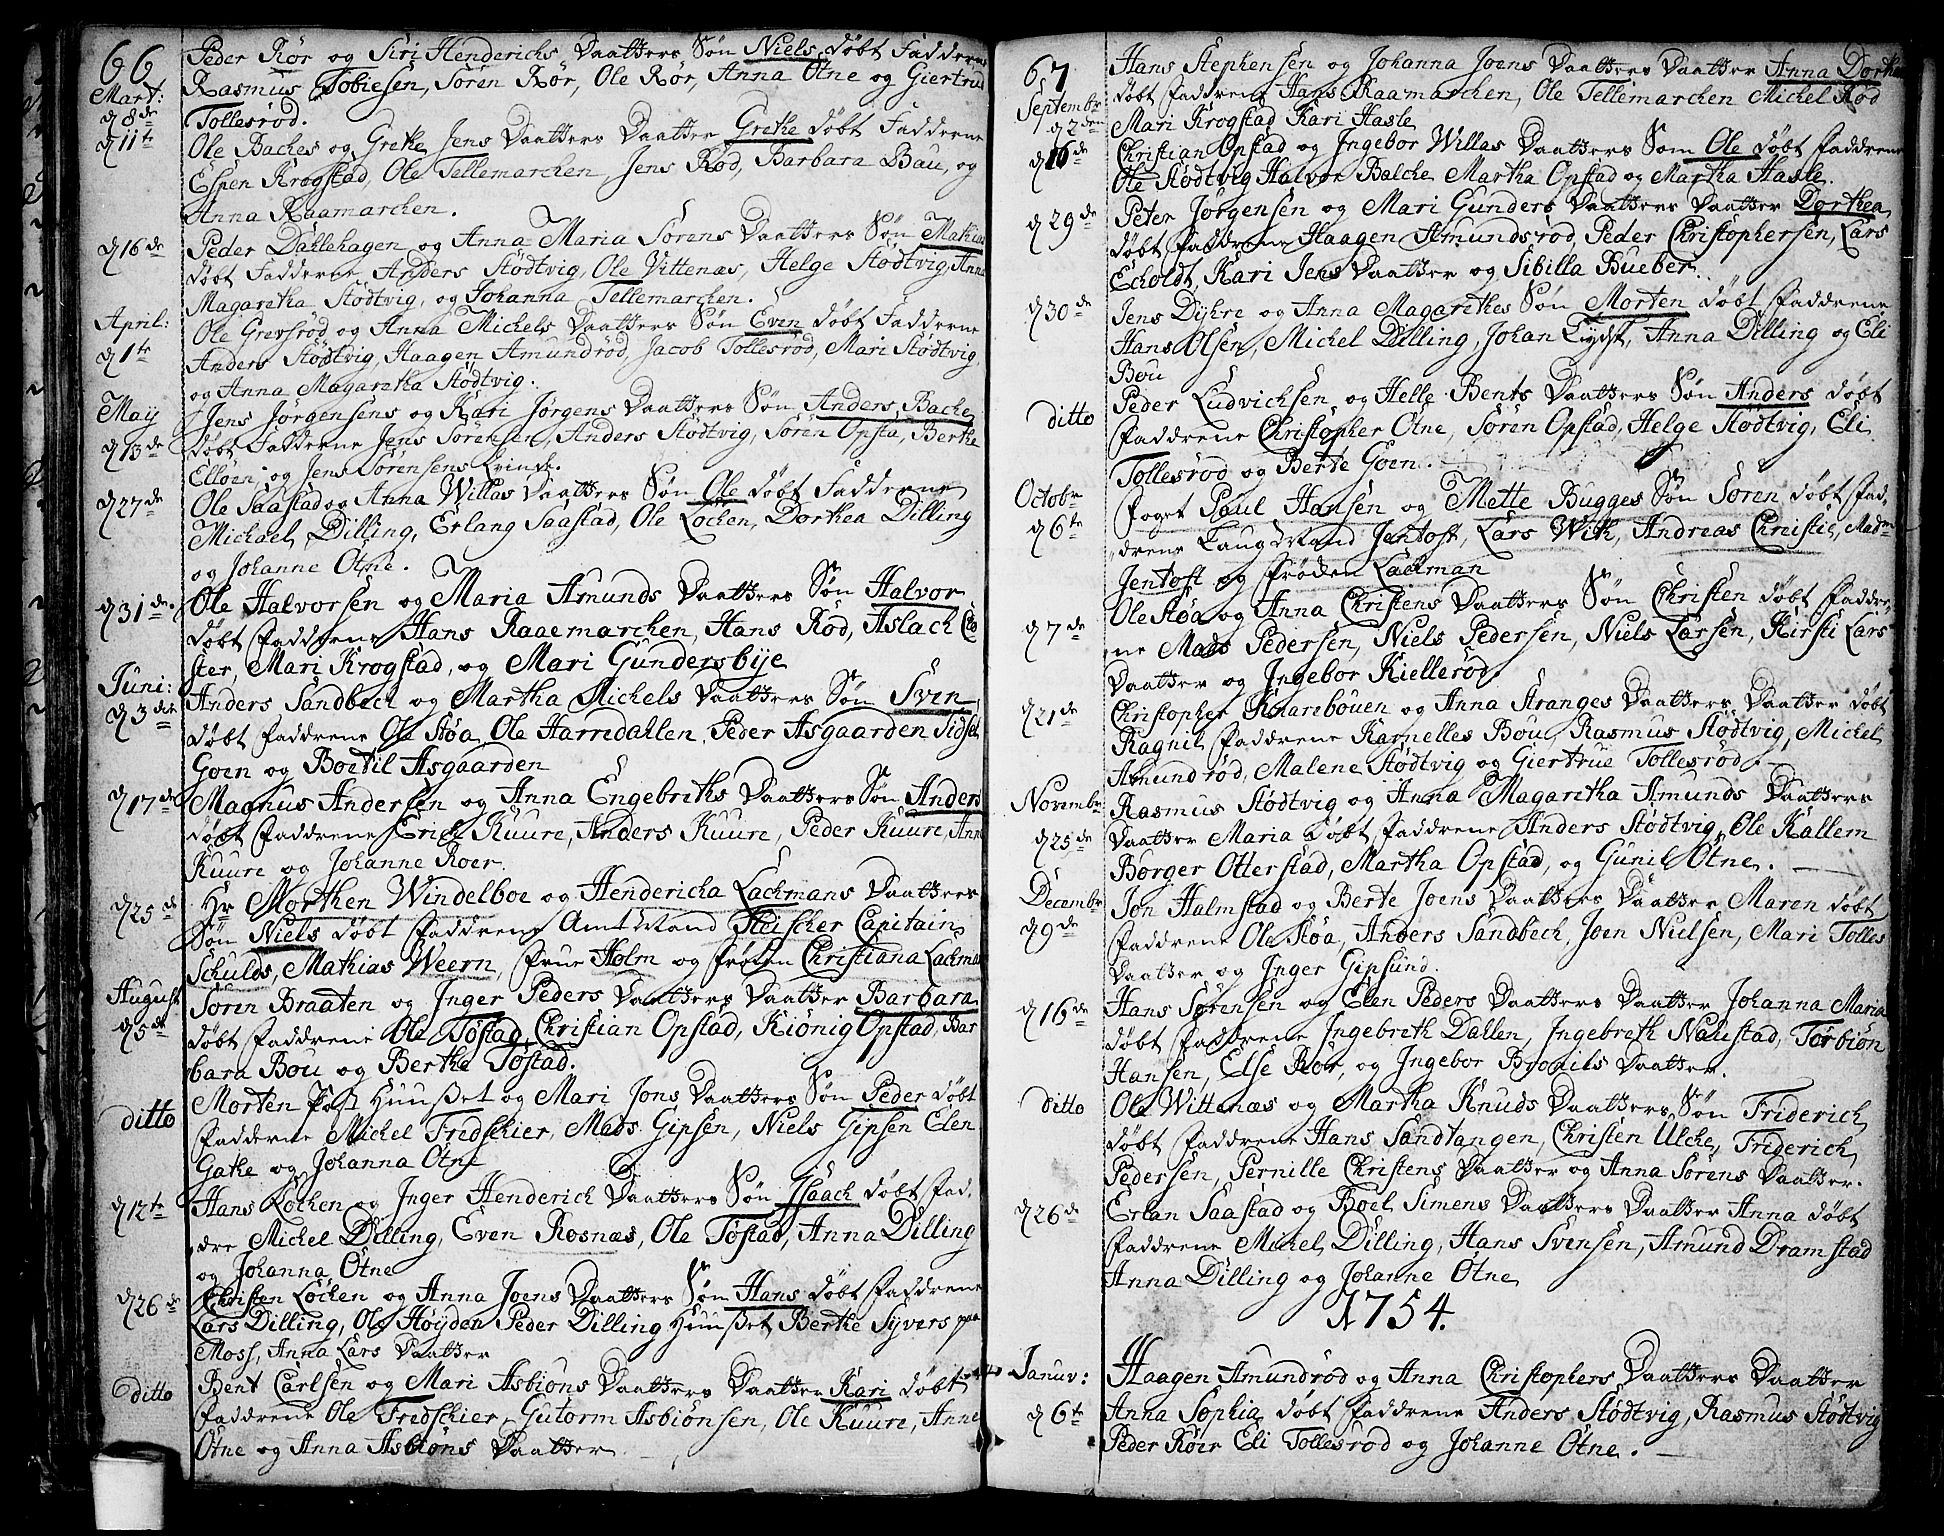 66
Peder Rør og Siri Henderichs Daatters Søn Niels døbt Fadderne
Rasmus Tobiesen, Søren Rør, Ole Rør, Anna Otne og Giertrud
Tollesrød.
Mart:
d 8de
d 11te
Ole Baches og Grethe Jens Daatters Daatter Grethe døbt Fadderne
Espen Krogstad, Ole Tellemarchen, Jens Rød, Barbara Bau, og
Anna Raamarchen.
d 16de
Peder Dahlehagen og Anna Maria Sørens Daatters Søn Mathias
døbt Fadderne, Anders Stødtvig, Ole Vittenæs, Helge Stødtvig, Anna
Magaretha Stødtvig, og Johanna Tellemarchen.
April:
d 1te
Ole Grevsrød og Anna Michels Daatters Søn Even døbt Fadderne
Anders Stødtvig, Haagen Amundrød, Jacob Tollesrød, Mari Stødtvig,
og Anna Magaretha Stødtvig.
May
d 13de
Jens Jørgensens og Kari Jørgens Daatters Søn Anders Bache
døbt Fadderne Jens Sørensen, Anders Stødtvig, Søren Opsta, Berthe
Elløen, og Jens Sørensens Qvinde.
d 27de
Ole Saastad og Anna Willas Daatters Søn Ole døbt Fadderne
Michael Dilling, Erlang Saastad, Ole Løchen, Dorthea Dilling
og Johanne Otne.
d 31de.
Ole Halvorsen og Maria Amunds Daatters Søn Halvor
døbt Faddrene Hans Raaemarchen, Hans Rød, Aslach
ster, Mari Krogstad, og Mari Gundersbye
Juni:
d 3die
Anders Sandbech og Martha Michels Daatters Søn Sven
døbt Faddrene Ole Støa, Ole Harrdahlen, Peder Asgaarden Sidsel
Goen og Boetil Asgaarden
d 17de
Magnus Andersen og Anna Engebreths Daatters Søn Anders
døbt Faddrene Erich Kuure, Anders Kuure, Peder Kuure, Anne
Kuure og Johanne Roer.
d 25de
Hr Morthen Windelboe og Hendericha Lachmans Daatters
Søn Niels døbt Faddrene Amtmand Fleischer Capitain
Schulds, Mathias Weern, Frue Holm og Frøken Christiana Lachman
August
d 5de
Søren Braaten og Inger Peders Daatters Daatter Barbara
døbt Faddrene Ole Tostad, Christian Opstad, Kiønig Opstad, Bar
bara Bou og Berthe Tøstad.
ditto
Morten Past Huuset og Mari Jons Daatters Søn Peder døbt
Fadderne Michel Fredschier, Mads Gipsen, Niels Gipsen Elen
Gathe og Johanna Otne
d 12te
Hans Løchen og Inger Henderich Daatters Søn Isaach døbt Fad-
dre Michel Dilling, Even Rosnæs, Ole Tøstad, Anna Dilling
og Johanna Otne
d 26de
Christen Løchen og Anna Joens Daatters Søn Hans døbt Faddrene
Lars Dilling, Ole Høyden Peder Dilling Huuset Berthe Syvers paa
Moss, Anna Lars Daatter
ditto
Bent Carlsen og Mari Asbiøns Daatters Daatter Kari døbt
Faddrene Ole Fredschier, Gutorm Asbiønsen, Ole Kuure, Anne
Otne og Anna Asbiøns Daatter
67
Septembr
d 2den
Hans Stephensen og Johanna Joens Daatters Daatter Anna Dorthea
døbt Faddrene Hans Raamarchen, Ole Tellemarchen Michel Rød
Mari Krogstad Kari Hasle
d 16de
Christian Opstad og Ingebor Willas Daatters Søn Ole døbt Faddrene
Ole Stødtvig Halvor Balche Martha Opstad og Martha Hasle.
d 29de
Peter Jørgensen og Mari Gunders Daatters Daatter Dorthea
døbt Faddrene Haagen Amundsrød, Peder Christophersen, Lars
Echoldt, Kari Jens Daatter og Sibilla Bueber.
d 30de
Jens Dyhre og Anna Magarethes Søn Morten døbt Faddrene
Hans Olsen, Michel Dilling, Johan Lydst, Anna Dilling og Eli
Bou
ditto
Peder Ludvichsen, og Helle Bents Daatters Søn Anders døbt
Faddrene Christopher Otne, Søren Opstad, Helge Stødtvig, Eli
Tollesrød og Berte Goen.
Octobr
d 6te
Foget Paul Hansen og Mette Bugges Søn Søren døbt Fad,
drene Laugmand Jentoft, Lars With, Andreas Christie, Madm
Jentoft og Frøden Lachman
d 7de
Ole Støa og Anna Christens Daatters Søn Christen døbt Faddre,
ne Mads Pedersen, Niels Pedersen, Niels Larsen, Kirsti Lars
Daatter og Ingebor Kiellerød.
d 21de
Christopher Knarebouen og Anna Aranges Daatters Daatter døbt
Ragnil Faddrene Karnelles Bou, Rasmus Stødtvig, Michel
Amundrød, Malene Stødtvig og Giertrue Tollesrød.
Novembr
d 25de
Rasmus Stødtvig og Anna Magaretha Amunds Daatters
Daatter Maria døbt Faddrene Anders Stødtvig, Ole Kallem
Børger Otterstad, Martha Opstad, og Gunil Otne.
Decembr
d 9de
Jon Halmstad og Berte Joens Daatters Daatter Maren døbt
Faddrene Ole Støa, Anders Sandbech, Joen Nielsen, Mari Tolles
Daatter og Inger Gipsund.
d 16de
Hans Sørensen og Elen Peders Daatters Daatter Johanna Maria
døbt Faddrene Ingebreth Dahlen, Ingebreth Nabestad, Torbiøn
Hansen, Else Rør, og Ingebor Bronils Daatter.
ditto
Ole Wittenæs og Martha Knuds Daatters Søn Friderich
døbt Faddrene Hans Sandtangen, Christen Ulche, Friderich
Pedersen, Pernille Christens Daatter og Anna Sørens Daatter.
d 26de
Erlan Saastad og Boel Simens Daatters Daatter Anna døbt
Faddrene Michel Dilling, Hans Svensen, Amund Dramstad
Anna Dilling og Johanne Otne
1754.
Januv:
d 6te
Haagen Amundrød og Anna Christophers Daatters Daatter
Anna Sophia døbt Faddrene Anders Stødtvig, Rasmus Stødtvig
Peder Røer Eli Tollesrød og Johanne Otne.